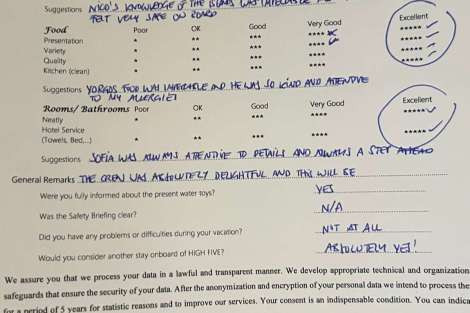 Suggestions NICO'S KNOWLEDGE OF THE ISLANDS WAS IMPECCABLE
FELT VERY SAFE ON BOARD
Food Poor OK Good Very Good Excellent
Presentation * ** *** **** *****
Variety * ** *** **** *****
Quality * ** *** **** *****
Kitchen (clean) * ** *** **** *****
Suggestions YORGOS FOOD WAS IMPECCABLE AND HE WAS SO KIND AND ATTENTIVE
TO MY ALLERGIES
Rooms/ Bathrooms Poor OK Good Very Good Excellent
Neatly * ** *** **** *****
Hotel Service
(Towels, Bed,..) * ** *** **** *****
Suggestions SOFIA WAS ALWAYS ATTENTIVE TO DETAILS AND ALWAYS A STEP AHEAD
General Remarks THE CREW WAS ABSOLUTELY DELIGHTFUL AND THIS WILL BE
Were you fully informed about the present water toys? YES
Was the Safety Briefing clear? N/A
Did you have any problems or difficulties during your vacation? NOT AT ALL
Would you consider another stay onboard of HIGH FIVE? ABSOLUTELY YES!
We assure you that we process your data in a lawful and transparent manner. We develop appropriate technical and organization
safeguards that ensure the security of your data. After the anonymization and encryption of your personal data we intend to process the
for a period of 5 years for statistic reasons and to improve our services. Your consent is an indispensable condition. You can indica